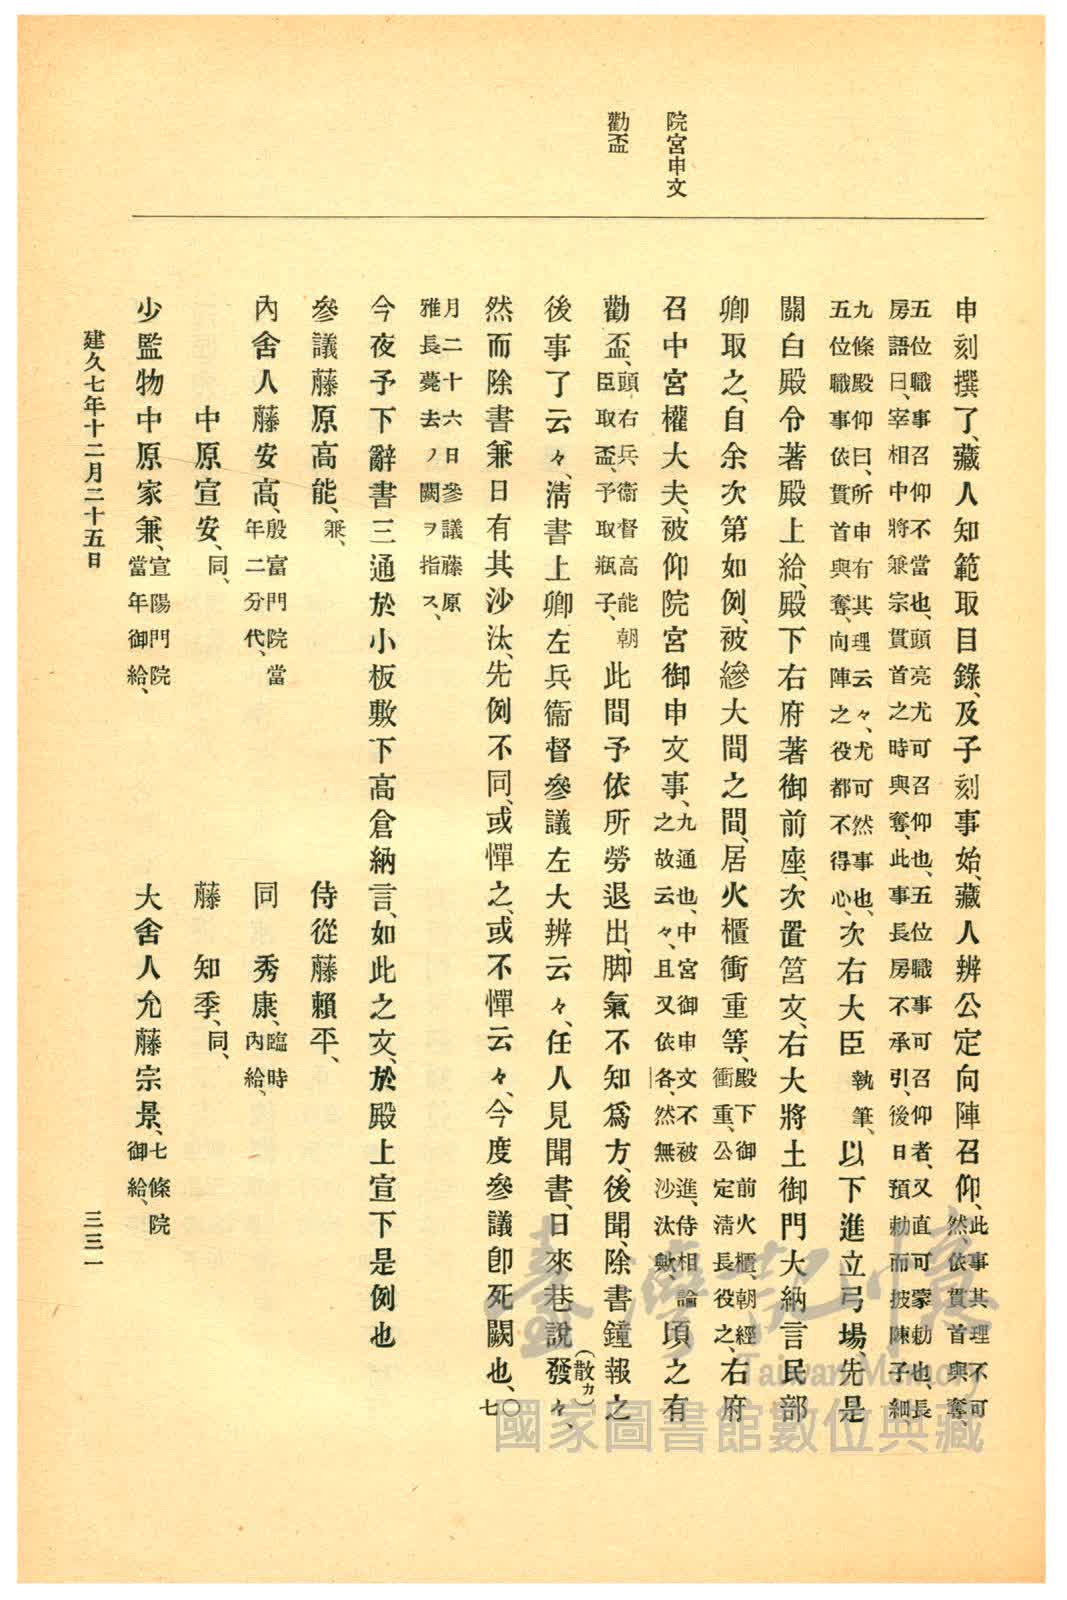 院宮申文
勸盃
申刻撰了、藏人知範取目錄、及子刻事始、藏人辨公定向陣召仰、此事其理不可然、依貫首與奪、
五位職事召仰不當也、頭亮尤可召仰也、五位職事可召仰者、又直可蒙勅也、長
房語曰、宰相中將兼宗貫首之時與奪、此事長房不承引、後日預勅而披陳子細
九條殿仰曰、所申有其理云々、尤可然事也、
五位職事依貫首與奪、向陣之役都不得心、次右大臣執筆、以下進立弓場、先是
關白殿令著殿上給、殿下右府著御前座、次置筥文、右大將土御門大納言民部
卿取之、自余次第如例、被縿大間之間、居火櫃衝重等、殿下御前火櫃、朝經衝重、公定淸長役之、右府
召中宮權大夫、被仰院宮御申文事、九通也、中宮御申文不被進、侍相論之故云々、且又依各、然無沙汰歟、頃之有
勸盃、頭右兵衞督高能朝臣取盃、予取瓶子、此間予依所勞退出、脚氣不知爲方、後聞、除書鐘報之
後事了云々、淸書上卿左兵衞督參議左大辨云々、任人見聞書、日來巷說發(散カ)々、
然而除書兼日有其沙汰、先例不同、或憚之、或不憚云々、今度參議卽死闕也、○七
月二十六日參議藤原
雅長薨去ノ闕ヲ指ス、
今夜予下辭書三通於小板敷下高倉納言、如此之文、於殿上宣下是例也
參議藤原高能、兼、 侍從藤賴平、
內舍人藤安高、殷富門院當年二分代、 同秀康、臨時內給、
中原宣安、同、 藤知季、同、
少監物中原家兼、宣陽門院當年御給、 大舍人允藤宗景、七條院御給、
建久七年十二月二十五日 三三一
臺灣記憶
Taiwan Memory
國家圖書館數位典藏